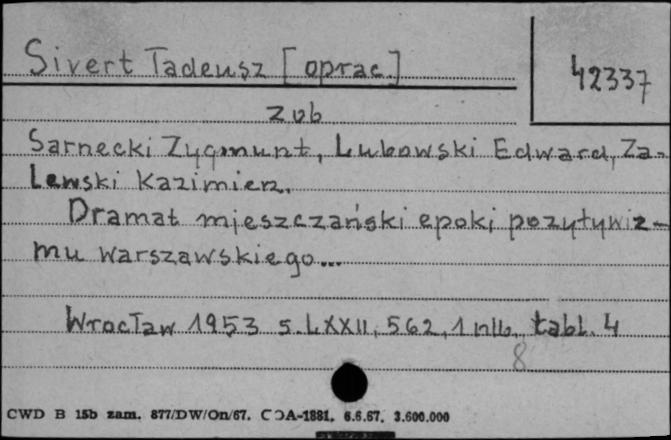 Sivert Tadeusz [oprac.]
42337
zob
Sarnecki Zygmunt, Lubowski Edward, Za-
lewski Kazimierz.
Dramat mieszczański epoki pozytywiz-
mu warszawskiego...
Wrocław 1953 s. LXXII, 562, 1 nlb, tabl. 4
8
CWD B 15b zam. 877/DW/On/67. COA-1881. 6.6.67. 3.600.000